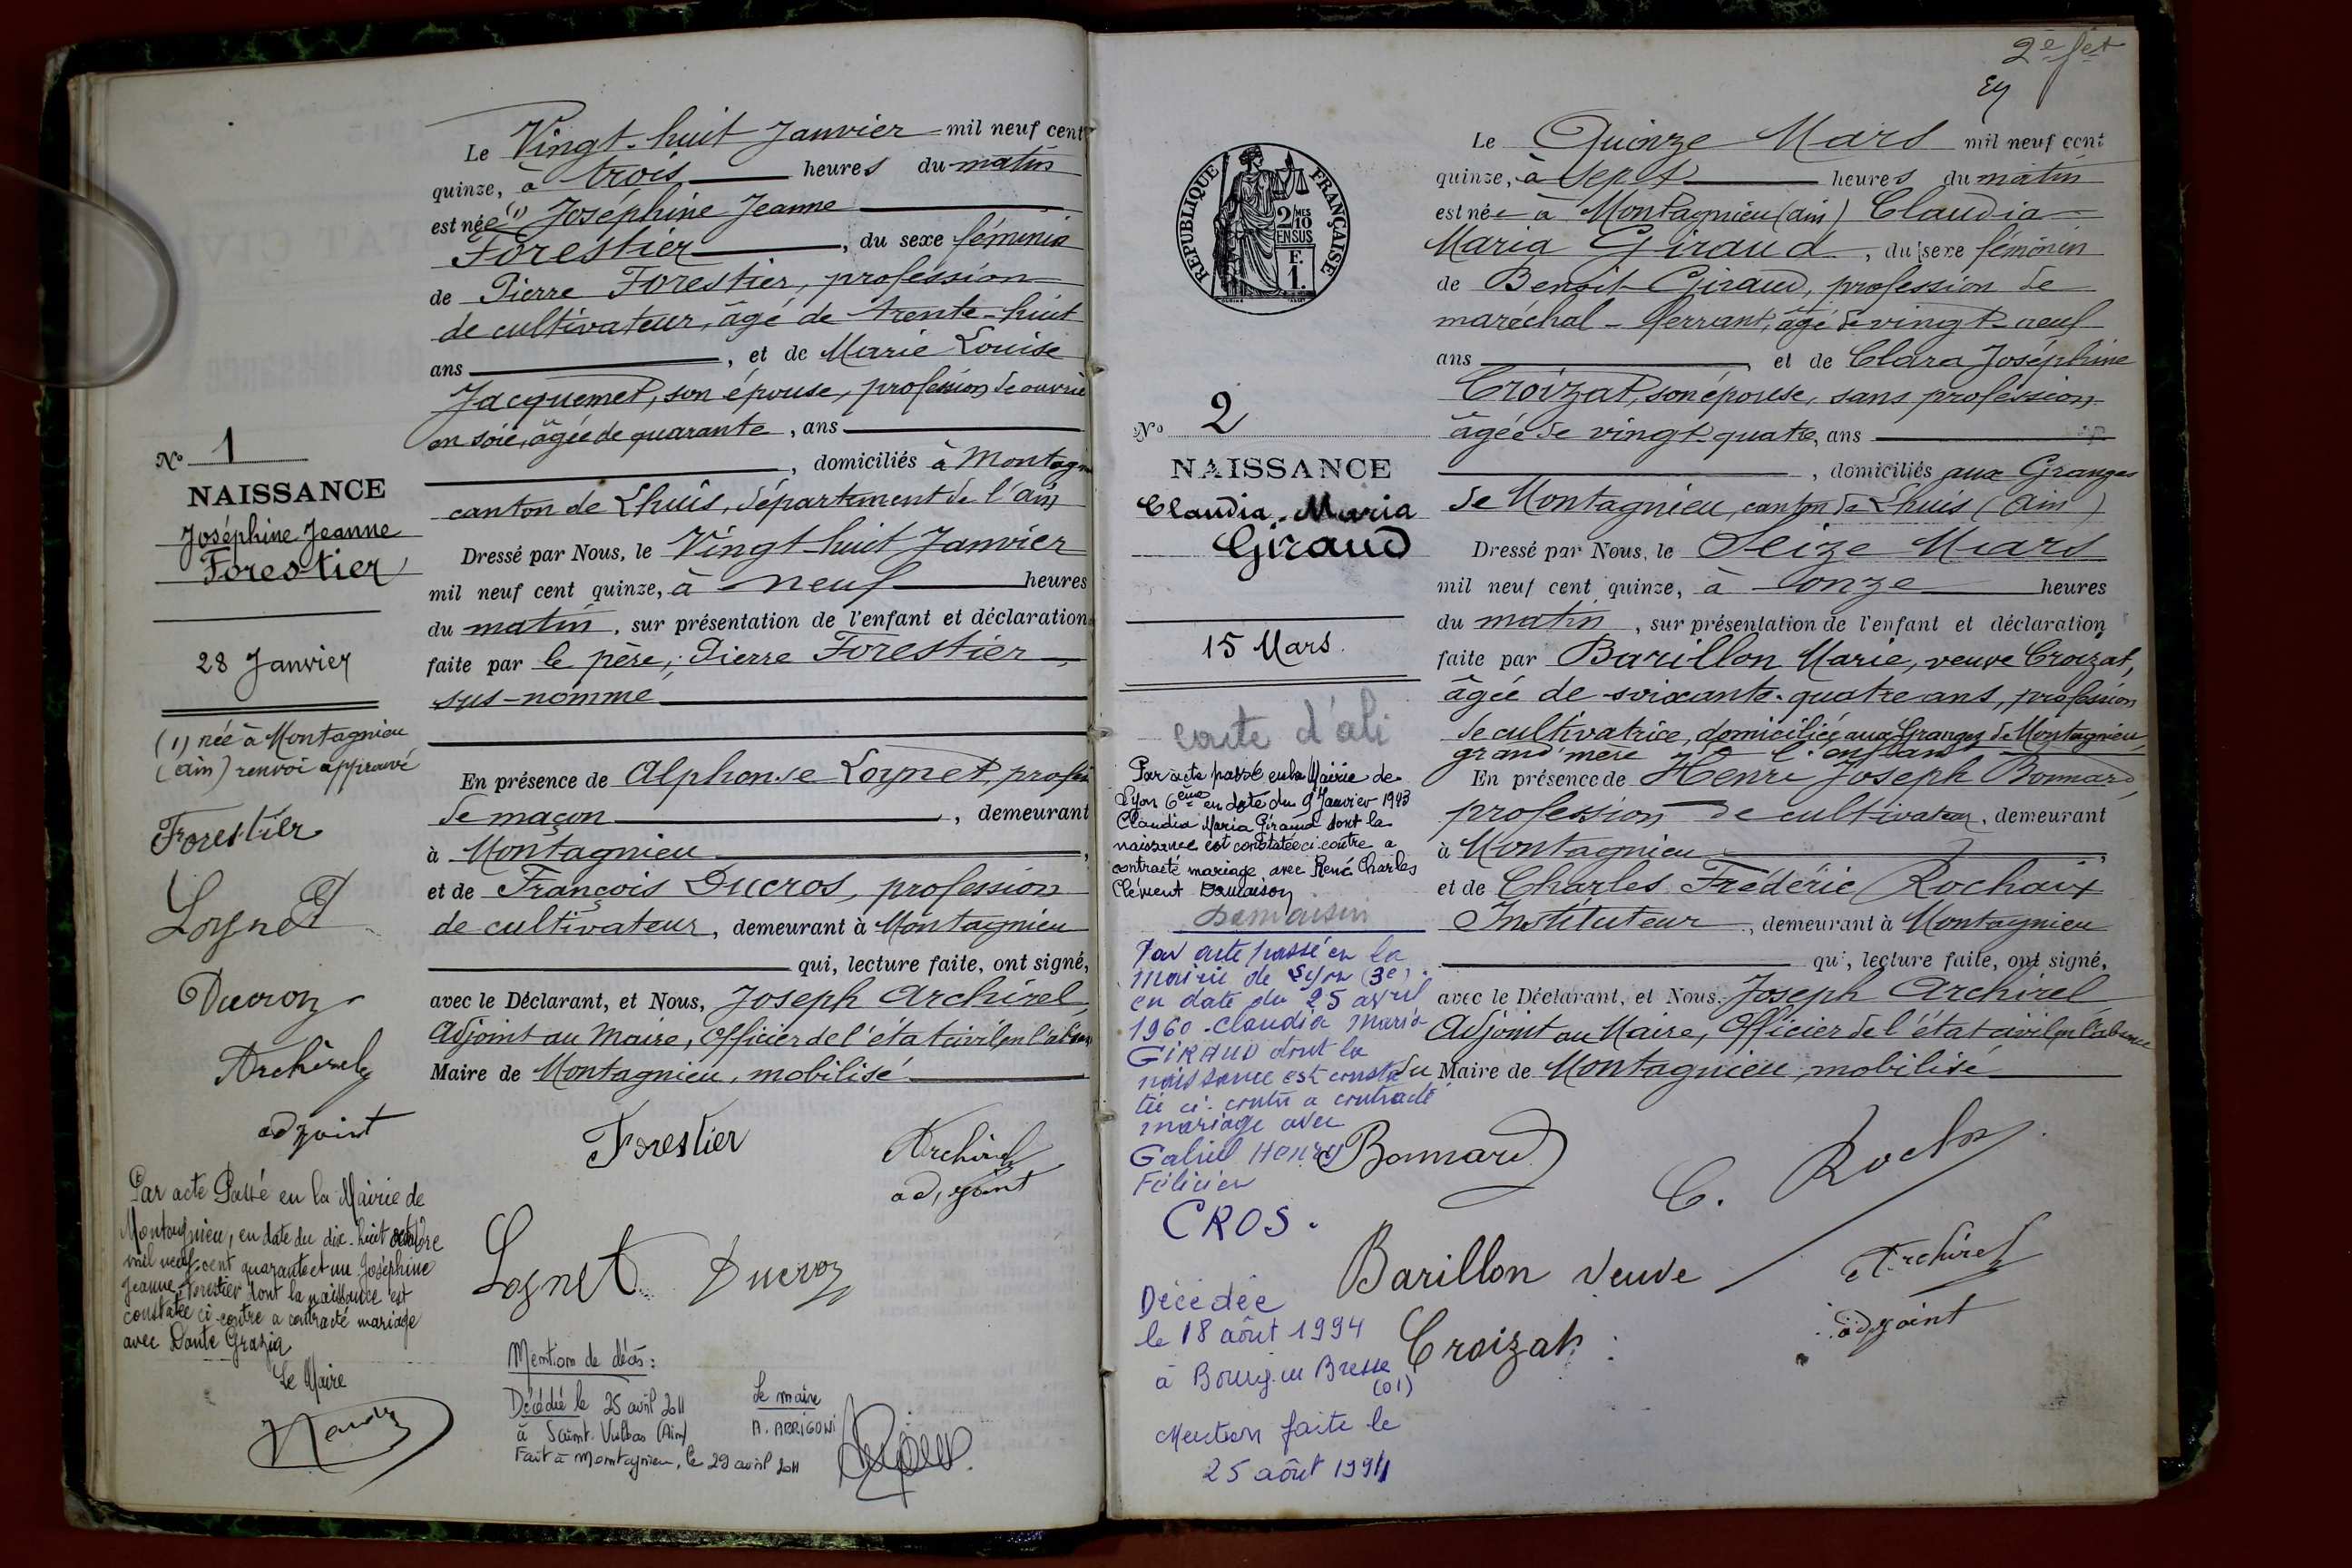 Le Vingt-huit Janvier mil neuf cent
quinze, à trois heures du matin
est née (1) Joséphine Jeanne
Forestier, du sexe féminin
de Pierre Forestier, profession
de cultivateur, âgé de trente-huit
ans, et de Marie Louise
Jacquemet, son épouse, profession de ouvriè
en soie, âgée de quarante, ans
, domiciliés à Montagn
canton de Lhuis, département de l'ain
Dressé par Nous, le Vingt-huit Janvier
mil neuf cent quinze, à neuf heures
du matin, sur présentation de l'enfant et déclaration
faite par le père, Pierre Forestier,
sus-nommé
En présence de Alphonse Loynet, profes
de maçon, demeurant
à Montagnieu,
et de François Ducros, profession
de cultivateur, demeurant à Montagnieu
qui, lecture faite, ont signé,
avec le Déclarant, et Nous, Joseph Archirel,
Adjoint au Maire, Officier de l'état civil, en l'absen
Maire de Montagnieu, mobilisé
Forestier
Archirel
adjoint
Loynet Ducros
Mention de décès:
Décédée le 25 avril 2011
à Saint-Vulbas (Ain)
Fait à Montagnieu, le 29 avril 2011
Le maire
A. ARRIGONI
No 1
NAISSANCE
Joséphine Jeanne
Forestier
28 Janvier
(1) née à Montagnieu
(ain) renvoi approuvé
Forestier
Loynet
Ducros
Archirel
adjoint
Par acte Passé en la Mairie de
Montagnieu, en date du dix-huit octobre
mil neuf cent quarante et un Joséphine
Jeanne Forestier dont la naissance est
constatée ci-contre a contracté mariage
avec Dante Grazia
Le Maire
2e f et
No 2
NAISSANCE
Claudia Maria
Giraud
15 Mars.
RÉPUBLIQUE FRANÇAISE
2/10 MES
EN SUS
F.
1.
Par acte passé en la Mairie de
Lyon 6ème en date du 9 Janvier 1943
Claudia Maria Giraud dont la
naissance est constatée ci-contre a
contracté mariage avec René Charles
Clément Damaisin
Damaisin
Par acte passé en la
mairie de Lyon (3e)
en date du 25 avril
1960 - Claudia Maria
GIRAUD dont la
naissance est consta
tée ci-contre a contracté
mariage avec
Gabriel Henry
Félicien
CROS.
Décédée
le 18 aôut 1994
à Bourg en Bresse
(01)
Mention faite le
25 aôut 1994
Le Quinze Mars mil neuf cent
quinze, à sept heures du matin
est née à Montagnieu (ain) Claudia
Maria Giraud, du sexe féminin
de Benoit Giraud, profession de
maréchal-ferrant, âgé de vingt-neuf
ans et de Clara Joséphine
Croizat, son épouse, sans profession
âgée de vingt-quatre, ans
, domiciliés aux Granges
de Montagnieu, canton de Lhuis (Ain)
Dressé par Nous, le Seize Mars
mil neuf cent quinze, à onze heures
du matin, sur présentation de l'enfant et déclaration
faite par Barillon Marie, veuve Croizat,
âgée de soixante-quatre ans, profession
de cultivatrice, domiciliée aux Granges de Montagnieu,
grand'mère de l'enfant
En présence de Henri Joseph Bonnard,
profession de cultivateur, demeurant
à Montagnieu,
et de Charles Frédéric Rochaix
Instituteur, demeurant à Montagnieu
qui, lecture faite, ont signé,
avec le Déclarant, et Nous, Joseph Archirel
Adjoint au Maire, Officier de l'état civil en l'absence
du Maire de Montagnieu, mobilisé
Bonnard
C. Rochaix
Barillon veuve
Croizat
Archirel
adjoint